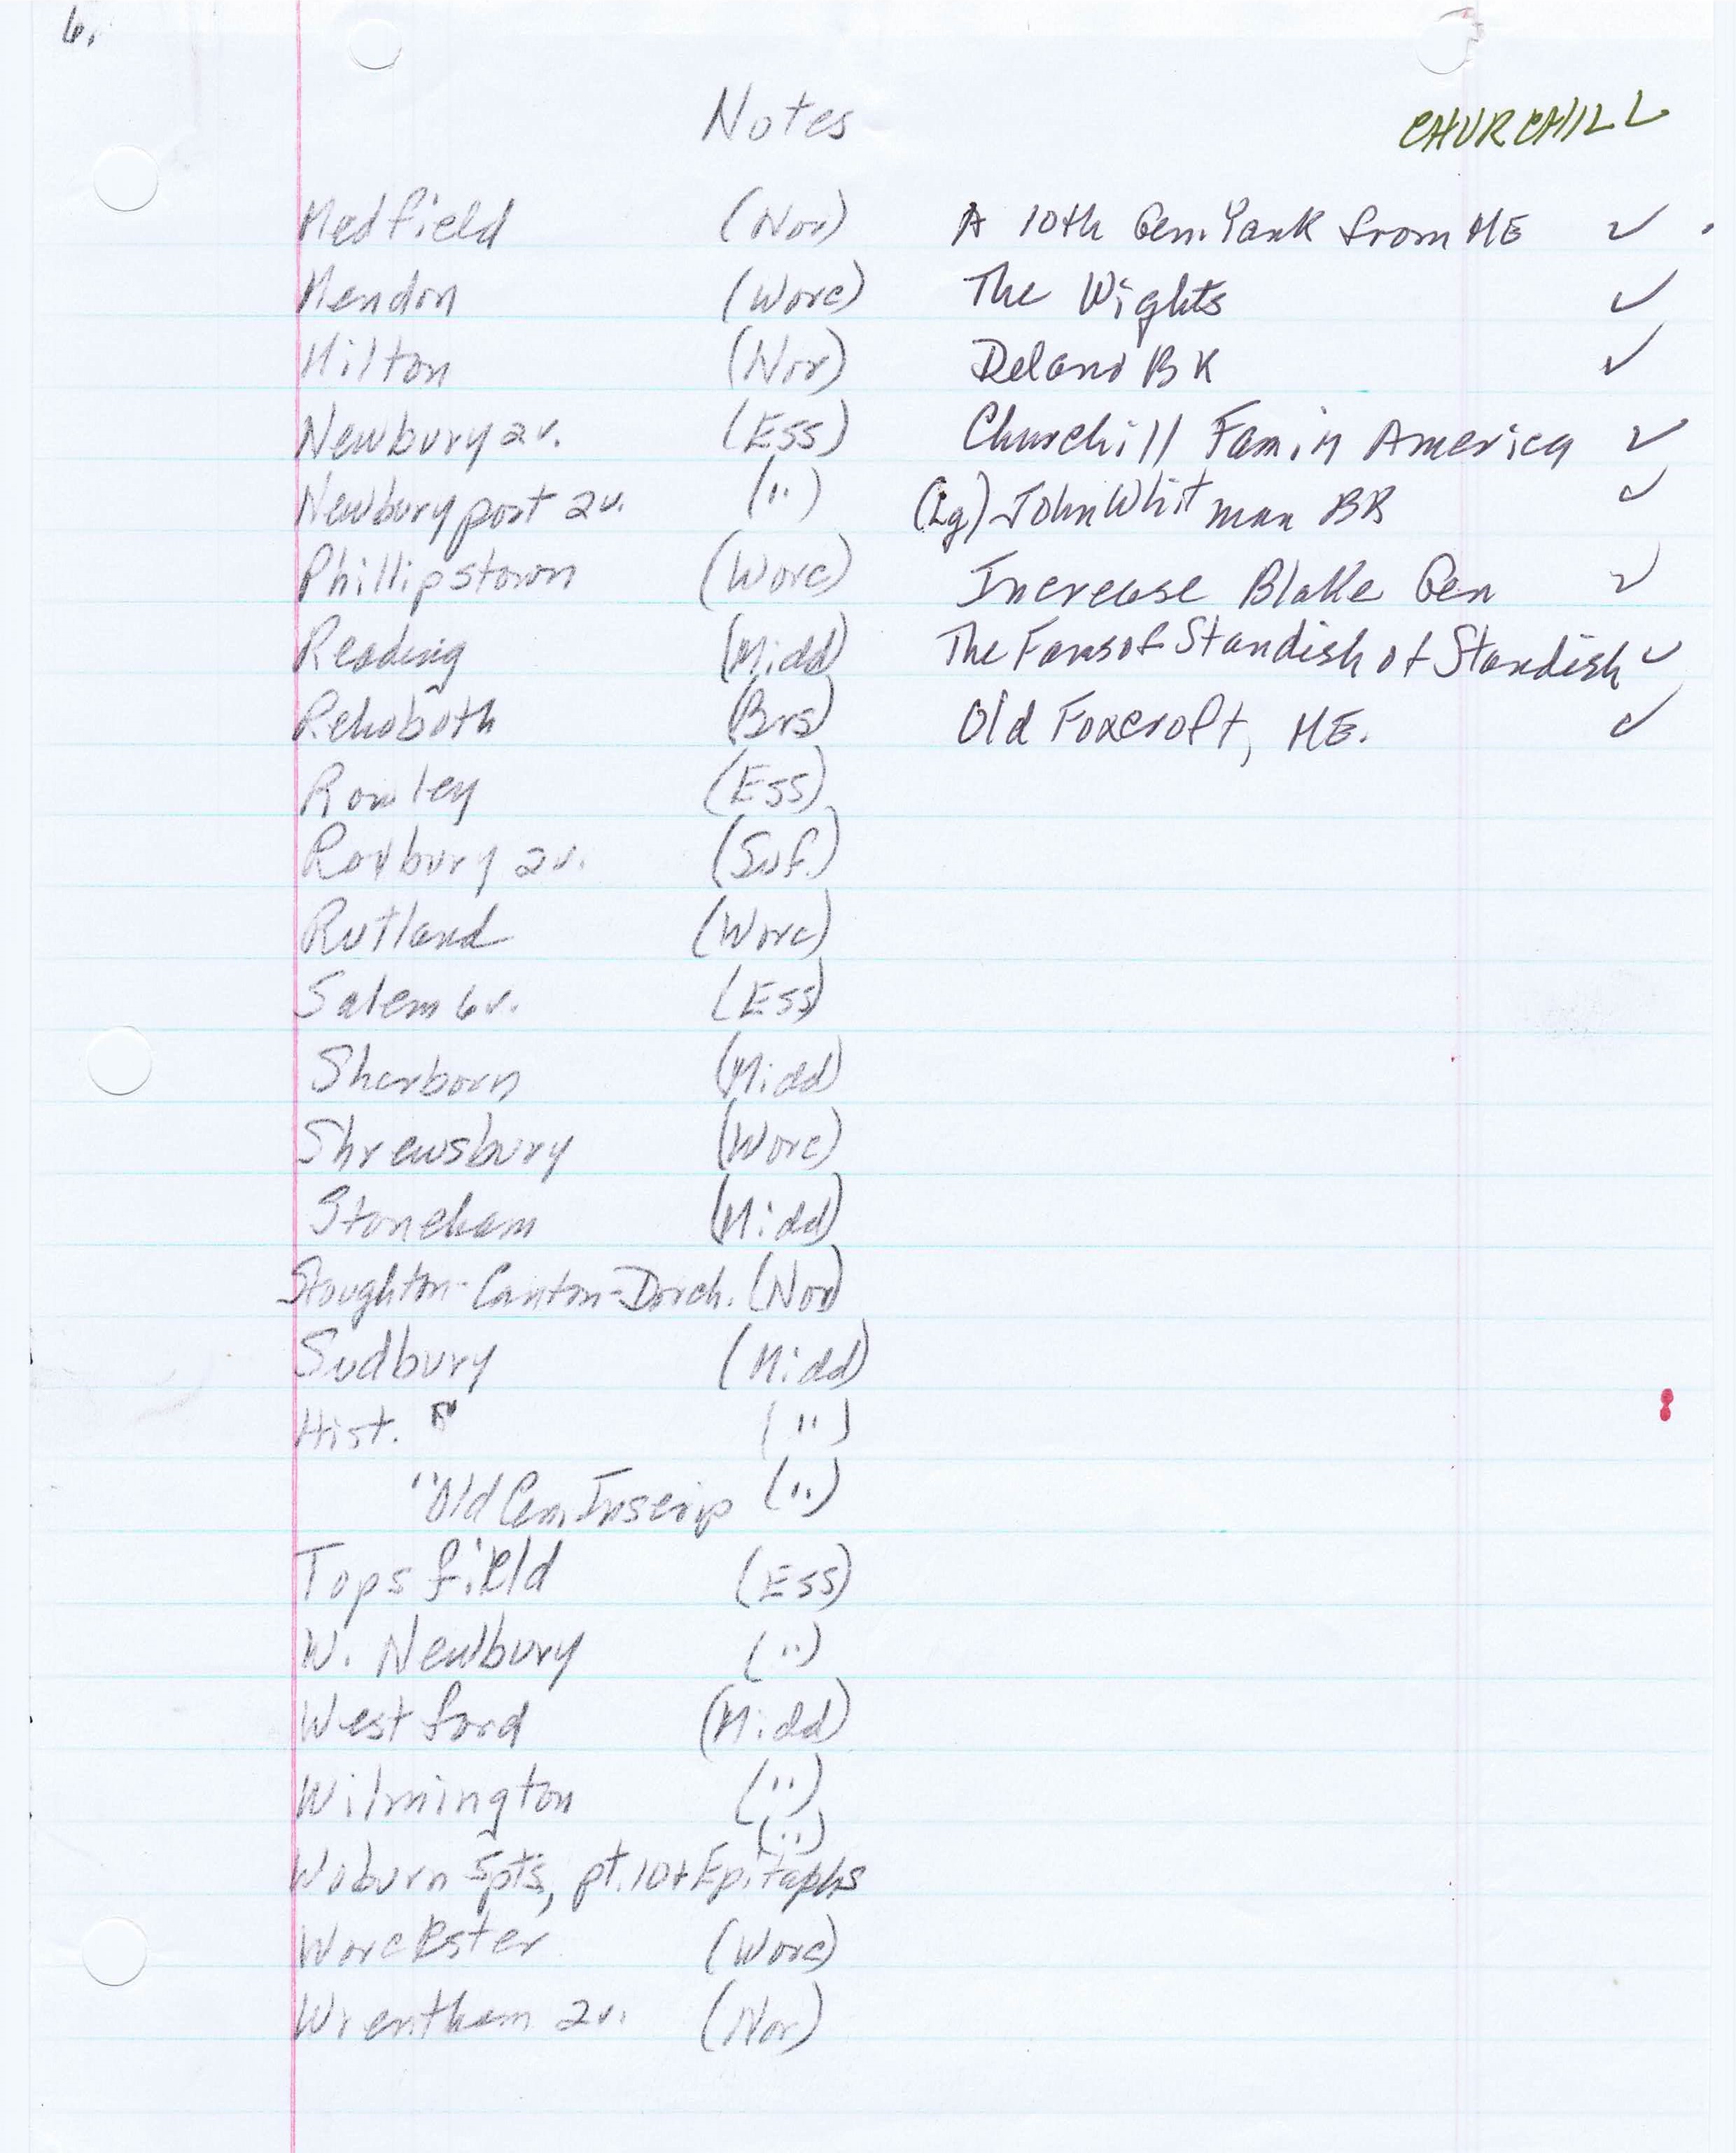 6.
Notes
CHURCHILL
Medfield (Nor) A 10th Gen. Yank from ME ✓
Mendon (Worc) The Wights ✓
Milton (Nor) Delano BK ✓
Newbury 2v. (Ess) Churchill Fam in America ✓
Newburyport 2v. (") (Lg) John Whitman BK ✓
Phillipstown (Worc) Increase Blake Gen ✓
Reading (Midd) The Fams of Standish of Standish ✓
Rehoboth (Brs) Old Foxcroft, ME. ✓
Rowley (Ess)
Roxbury 2v. (Suf.)
Rutland (Worc)
Salem 6v. (Ess)
Sherborn (Midd)
Shrewsbury (Worc)
Stoneham (Midd)
Stoughton-Canton-Dorch. (Nor)
Sudbury (Midd)
Hist. " (")
" Old Cem. Inscrip (")
Topsfield (Ess)
W. Newbury (")
Westford (Midd)
Wilmington (")
(")
Woburn 5pts, pt. 10+Epitaphs
Worcester (Worc)
Wrentham 2v. (Nor)